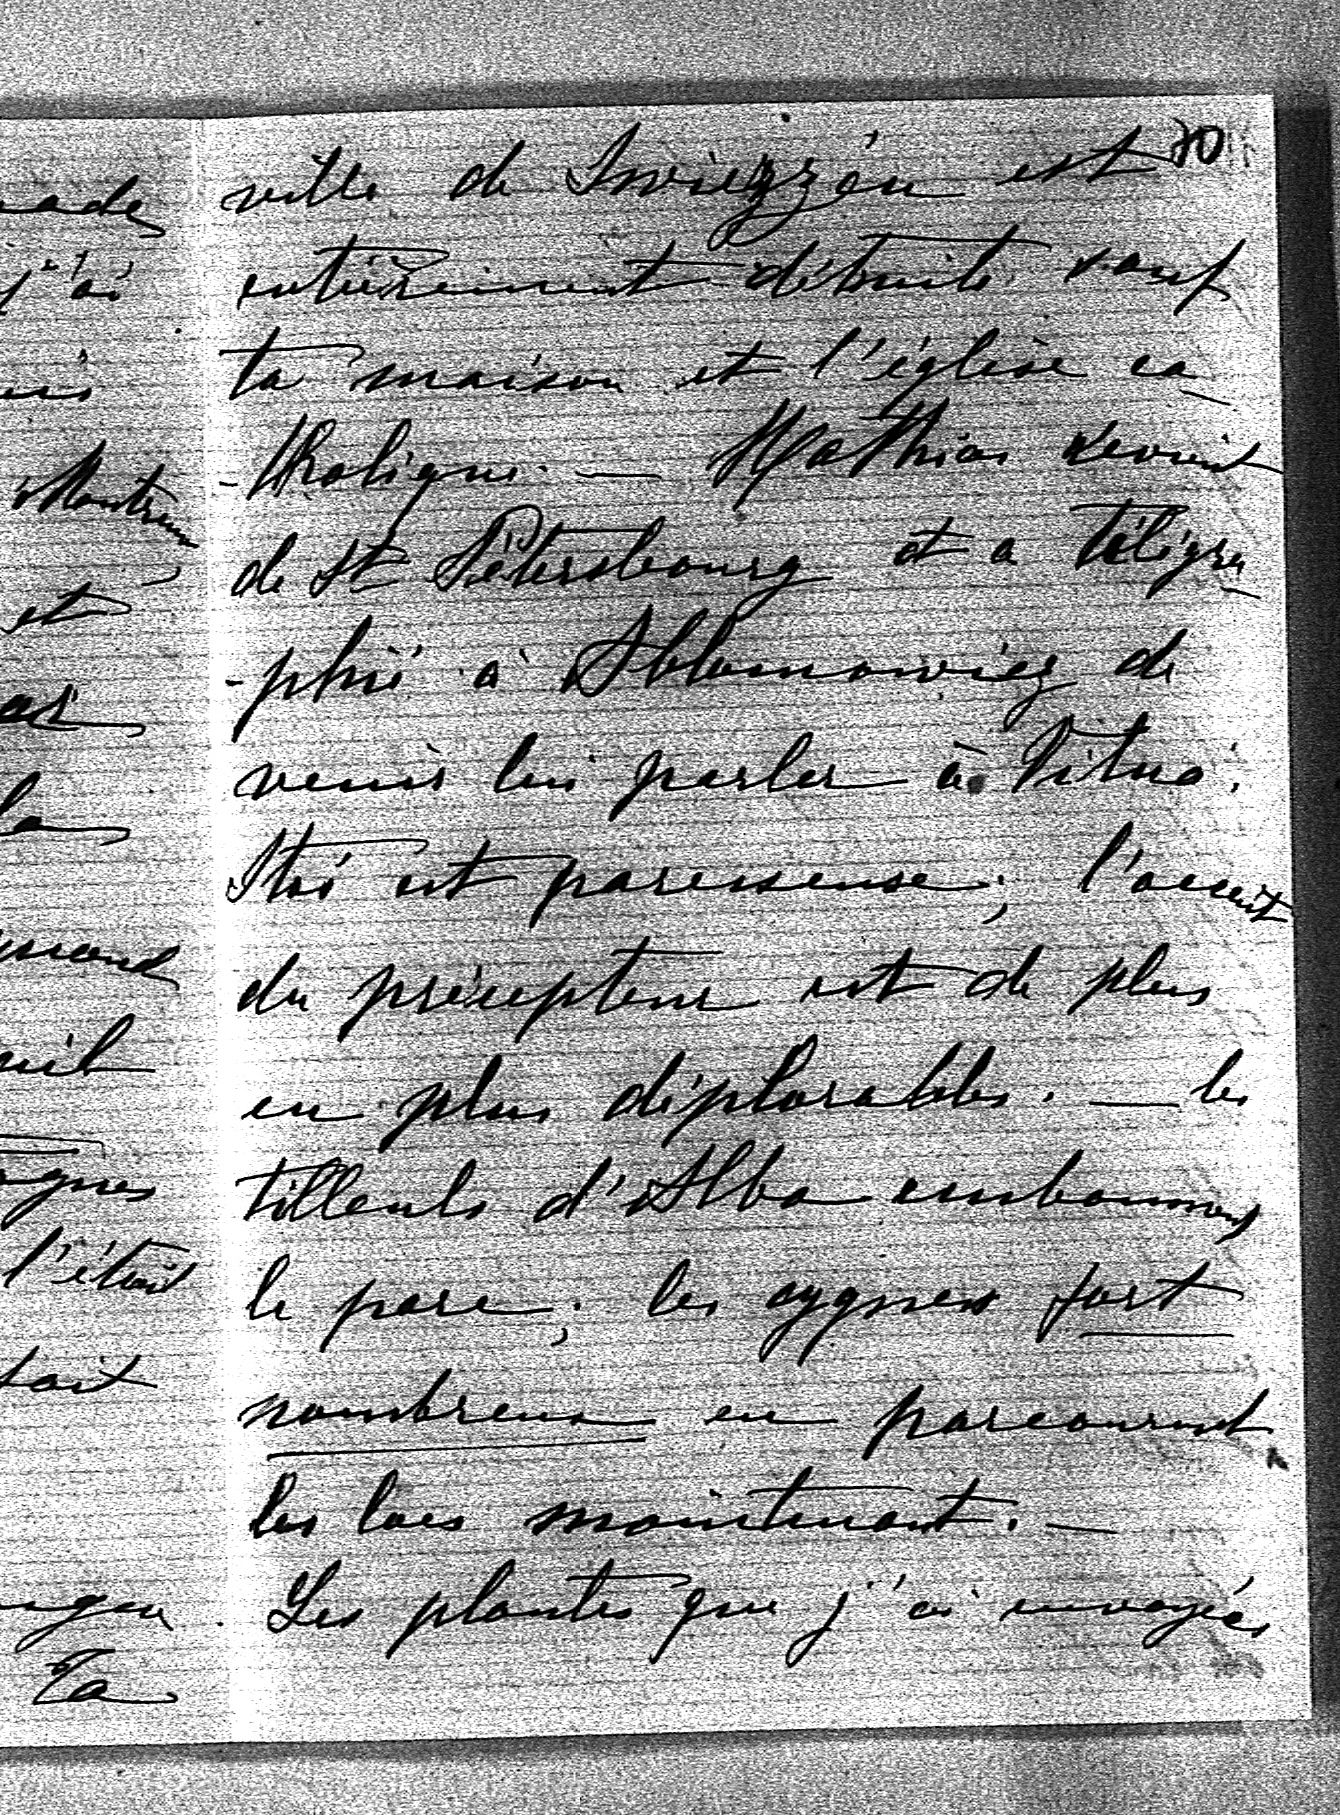 70
ville de Swiezzéu est
entièrement détruite sauf
ta maison et l'église ca
-tholique. — Mathias revient
de St Pétersbourg et a télégra
-phié à Ablamowicz de
venir lui parler à Vilna.
Itoi est paresseuse; l'accent
du précepteur est de plus
en plus déplorable. — les
tilleuls d'Alba embaument
le parc; les cygnes fort
nombreux en parcourent
les lacs maintenant. —
Les plantes que j'ai envoyées
j'ai
Montreux,
et
la
l'était
Ta